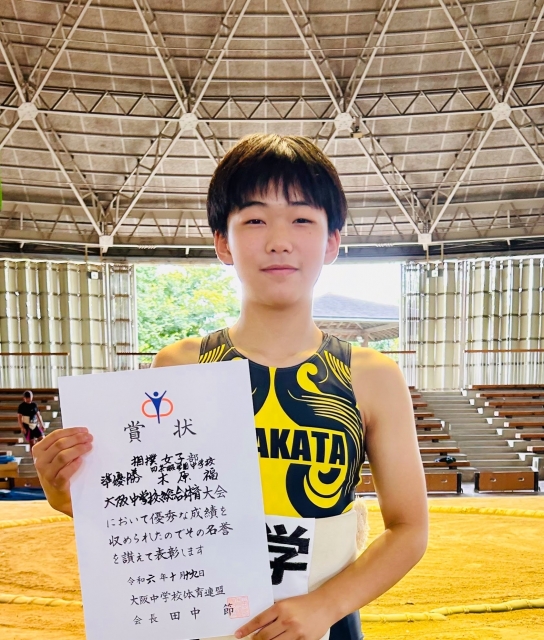 賞状
相撲 女子部
準優勝 木原 福
大阪中学校総合体育大会
において優秀な成績を
収められたのでその名誉
を讃えて表彰します
令和六年十月
大阪中学校体育連盟
会長 田中 節
AKATA
学